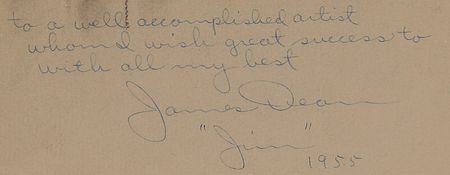 to a well accomplished artist
whom I wish great success to
with all my best
James Dean
"Jim"
1955